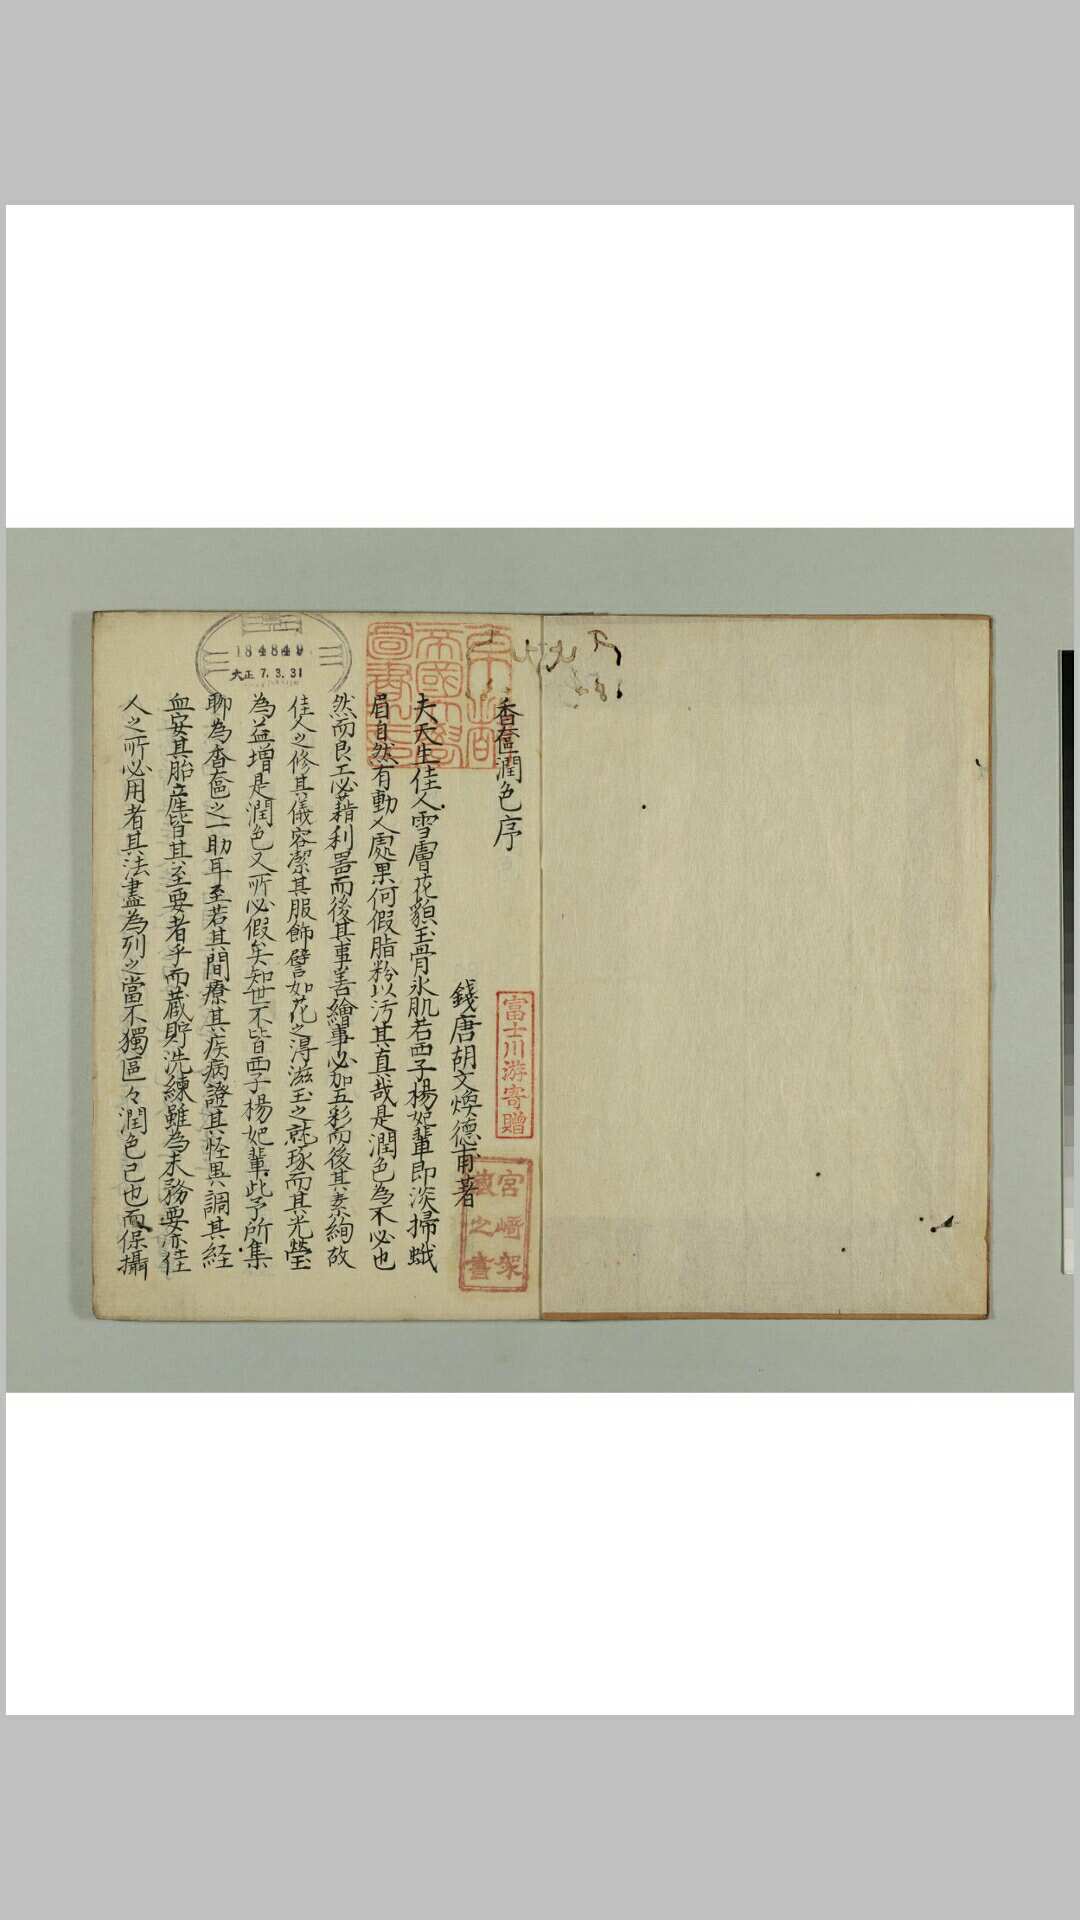 香奩潤色序
錢唐胡文煥德甫著
夫天生佳人雪膚花貌玉骨氷肌若西子楊妃輩即淡掃蛾
眉自然有動人處果何假脂粉以汚其真哉是潤色為不必也
然而良工必藉利噐而後其事善繪事必加五彩而後其素絢故
佳人之修其儀容潔其服飾譬如花之得滋玉之就琢而其光瑩
為益增是潤色又所必假矣知世不皆西子楊妃輩此予所集
聊為香奩之一助耳至若其間療其疾病證其怪異調其経
血安其胎產皆其至要者乎而蔵貯洗練雖為末務要亦佳
人之所必用者其法盡為列之當不獨區々潤色已也而保攝
富士川游寄贈
宮﨑架
蔵之書
京都
帝國大學
圖書之印
184849
大正 7.3.31